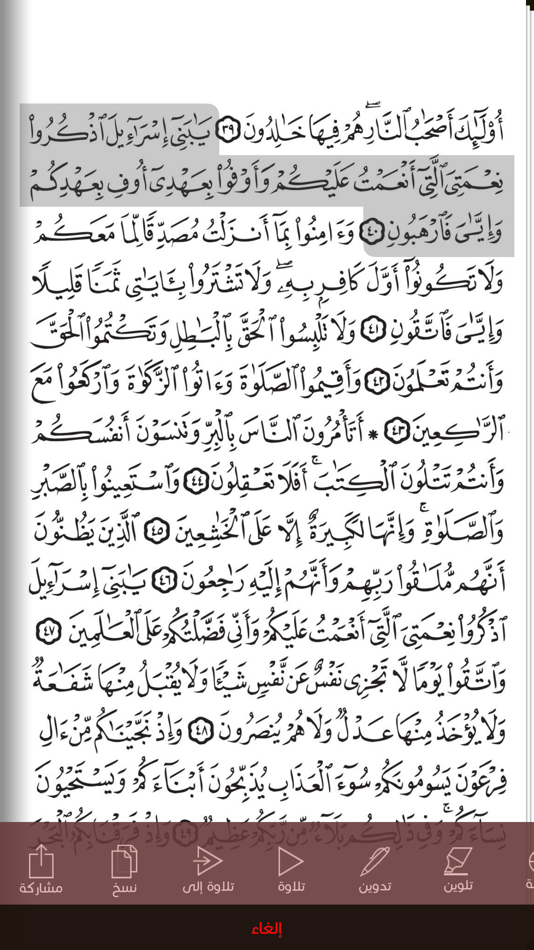 أُوْلَـٰٓئِكَ أَصۡحَـٰبُ ٱلنَّارِۖ هُمۡ فِيهَا خَـٰلِدُونَ ٣٩ يَـٰبَنِىٓ إِسۡرَـٰٓءِيلَ ٱذۡكُرُواْ
نِعۡمَتِىَ ٱلَّتِىٓ أَنۡعَمۡتُ عَلَيۡكُمۡ وَأَوۡفُواْ بِعَهۡدِىٓ أُوفِ بِعَهۡدِكُمۡ
وَإِيَّـٰىَ فَٱرۡهَبُونِ ٤٠ وَءَامِنُواْ بِمَآ أَنزَلۡتُ مُصَدِّقًا لِّمَا مَعَكُمۡ
وَلَا تَكُونُوٓاْ أَوَّلَ كَافِرِۭ بِهِۦۖ وَلَا تَشۡتَرُواْ بِـَٔايَـٰتِى ثَمَنًا قَلِيلًا
وَإِيَّـٰىَ فَٱتَّقُونِ ٤١ وَلَا تَلۡبِسُواْ ٱلۡحَقَّ بِٱلۡبَـٰطِلِ وَتَكۡتُمُواْ ٱلۡحَقَّ
وَأَنتُمۡ تَعۡلَمُونَ ٤٢ وَأَقِيمُواْ ٱلصَّلَوٰةَ وَءَاتُواْ ٱلزَّكَوٰةَ وَٱرۡكَعُواْ مَعَ
ٱلرَّٰكِعِينَ ٤٣ * أَتَأۡمُرُونَ ٱلنَّاسَ بِٱلۡبِرِّ وَتَنسَوۡنَ أَنفُسَكُمۡ
وَأَنتُمۡ تَتۡلُونَ ٱلۡكِتَـٰبَۚ أَفَلَا تَعۡقِلُونَ ٤٤ وَٱسۡتَعِينُواْ بِٱلصَّبۡرِ
وَٱلصَّلَوٰةِۚ وَإِنَّهَا لَكَبِيرَةٌ إِلَّا عَلَى ٱلۡخَـٰشِعِينَ ٤٥ ٱلَّذِينَ يَظُنُّونَ
أَنَّهُم مُّلَـٰقُواْ رَبِّهِمۡ وَأَنَّهُمۡ إِلَيۡهِ رَٰجِعُونَ ٤٦ يَـٰبَنِىٓ إِسۡرَـٰٓءِيلَ
ٱذۡكُرُواْ نِعۡمَتِىَ ٱلَّتِىٓ أَنۡعَمۡتُ عَلَيۡكُمۡ وَأَنِّى فَضَّلۡتُكُمۡ عَلَى ٱلۡعَـٰلَمِينَ ٤٧
وَٱتَّقُواْ يَوۡمًا لَّا تَجۡزِى نَفۡسٌ عَن نَّفۡسٍ شَيۡـًٔا وَلَا يُقۡبَلُ مِنۡهَا شَفَـٰعَةٌ
وَلَا يُؤۡخَذُ مِنۡهَا عَدۡلٌ وَلَا هُمۡ يُنصَرُونَ ٤٨ وَإِذۡ نَجَّيۡنَـٰكُم مِّنۡ ءَالِ
فِرۡعَوۡنَ يَسُومُونَكُمۡ سُوٓءَ ٱلۡعَذَابِ يُذَبِّحُونَ أَبۡنَآءَكُمۡ وَيَسۡتَحۡيُونَ
نِسَآءَكُمۡۚ وَفِى ذَٰلِكُم بَلَآءٌ مِّن رَّبِّكُمۡ عَظِيمٌ ٤٩ وَإِذۡ فَرَقۡنَا بِكُمُ ٱلۡبَحۡرَ
تلوين تدوين تلاوة تلاوة إلى نسخ مشاركة
إلغاء